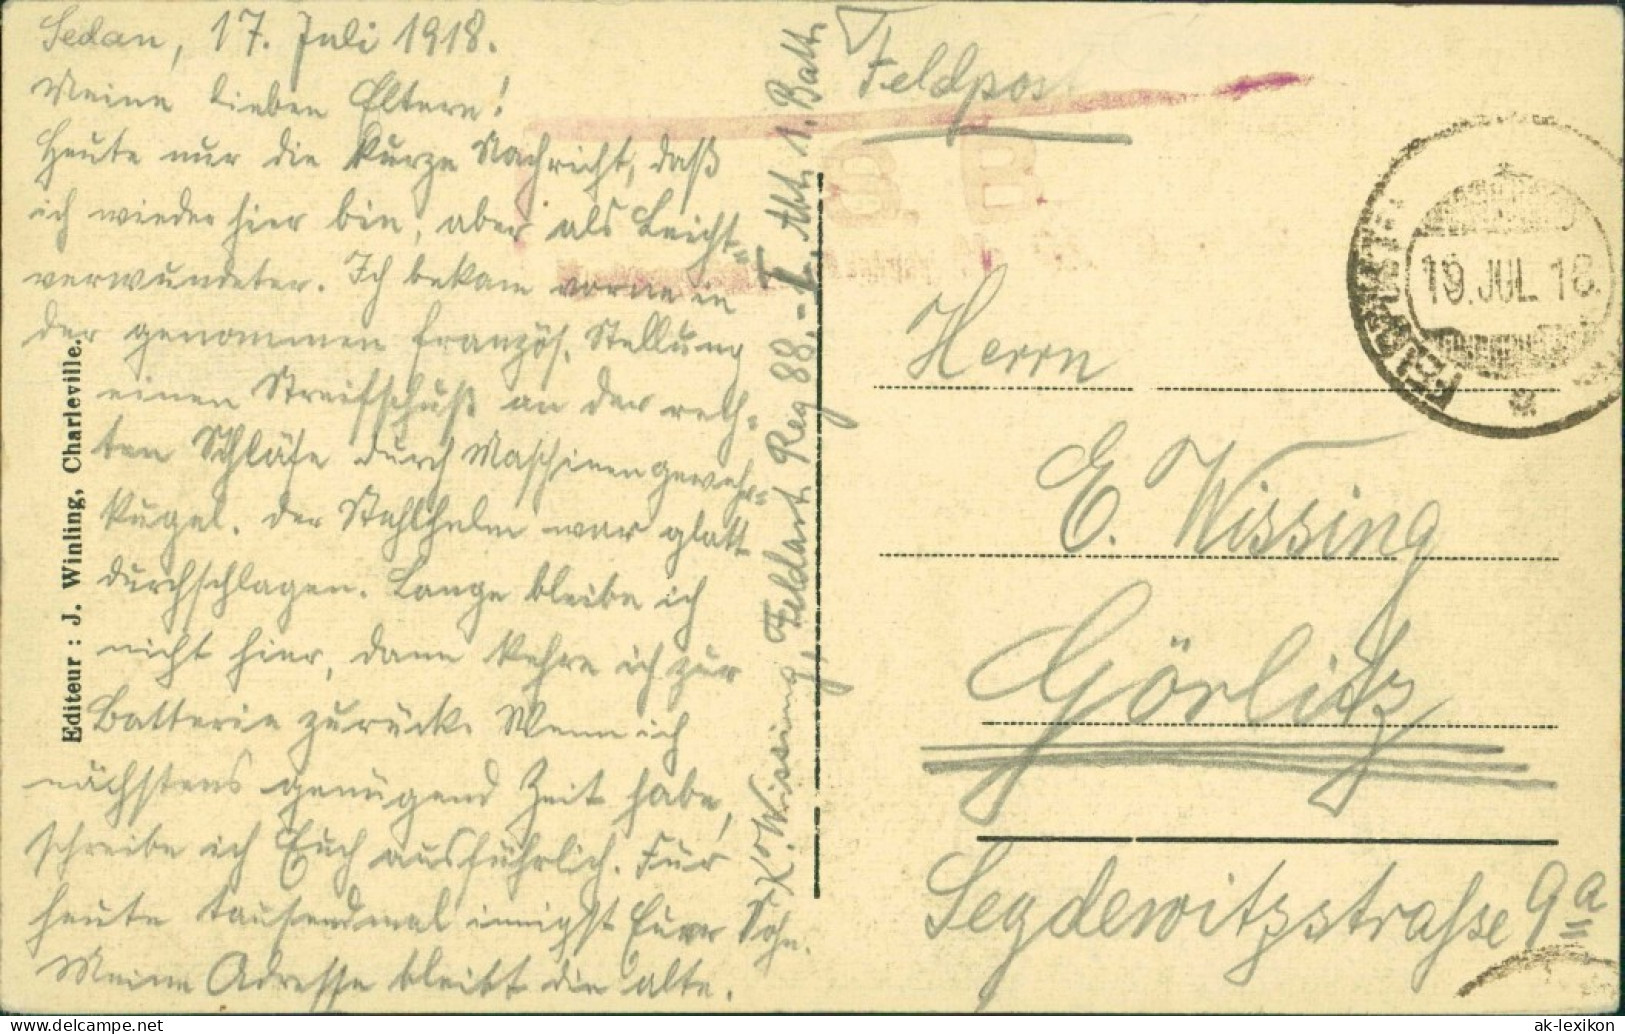 Sedan, 17. Juli 1918.
Meine lieben Eltern!
Heute nur die kurze Nachricht, daß
ich wieder hier bin, aber als Leicht-
verwundeter. Ich bekam vorne in
der genommenen französ. Stellung
einen Streifschuß an der rech-
ten Schläfe durch Maschinengewehr-
kugel. Der Stahlhelm war glatt
durchschlagen. Lange bleibe ich
nicht hier, dann kehre ich zur
Batterie zurück. Wenn ich
nächstens genügend Zeit habe,
schreibe ich Euch ausführlich. Für
heute tausendmal innigst Euer Sohn.
Meine Adresse bleibt die alte.
K. Wissing, Feldart. Reg 88. - I. Abt. 1. Batt.
Editeur : J. Winling, Charleville.
Feldpos
19. JUL. 18.
Herrn
E. Wissing
Görlitz
Seydewitzstrasse 9a
ak-lexikon